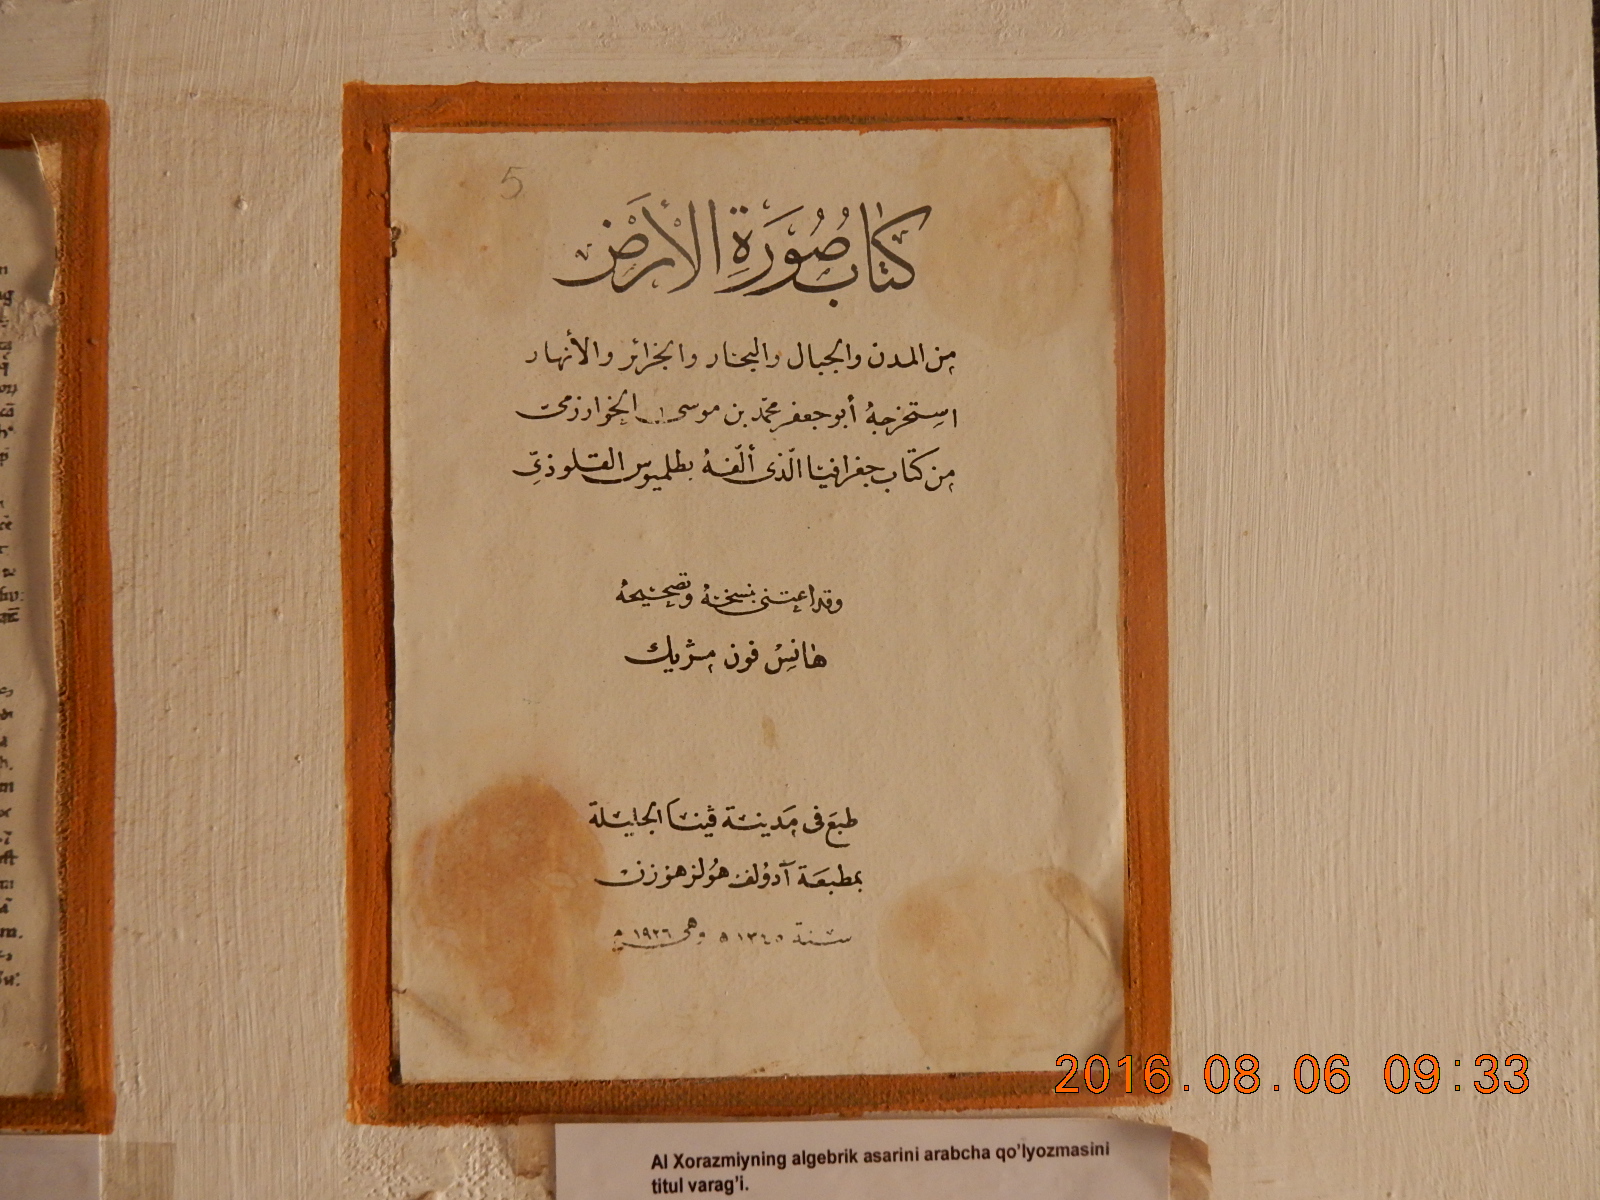 5
كتاب صُوْرَةِ الْأَرْضِ
من المدن والجبال والبحار والجزائر والأنهار
استخرجهُ أبو جعفر محمّد بن موسى الخوارزمىّ
من كتاب جغرافيا الّذى ألّفهُ بطلميوس القلوذىّ
وقد اعتنى بنسخهُ وتصحيحهُ
هانسْ فون مژيك
طبعَ فى مَدينة ڤينا الجليلة
بمطبعَة آدُولف هُولزهوزن
سنة ١٣٤٥ ه وهى ١٩٢٦ م
2016.08.06 09:33
Al Xorazmiyning algebrik asarini arabcha qo'lyozmasini
titul varag'i.